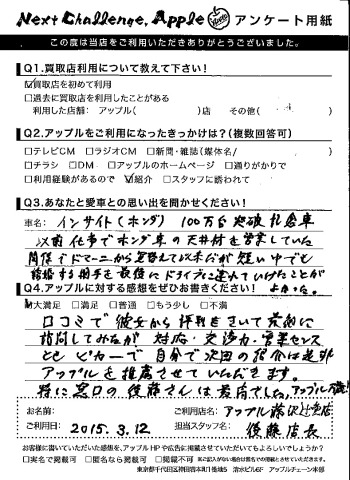 Next Challenge, Apple アンケート用紙
この度は当店をご利用いただきありがとうございました。
Q1.買取店利用について教えて下さい!
☑買取店を初めて利用
□過去に買取店を利用したことがある
利用した店舗: アップル( )店 その他( )
Q2.アップルをご利用になったきっかけは?(複数回答可)
□テレビCM □ラジオCM □新聞・雑誌(媒体名/ )
□チラシ □DM □アップルのホームページ □通りがかりで
□利用経験があるので ☑紹介 □スタッフに誘われて
Q3.あなたと愛車との思い出を聞かせください!
車名: インサイト(ホンダ) 100万台突破記念車
以前仕事でホンダ車の天井材を営業していた
関係でドマーニから乗替えて以来だが短い中でも
最後にドライブに連れていけたことが
よかった。
Q4.アップルに対する感想をぜひお書きください!
☑大満足 □満足 □普通 □もう少し □不満
口コミで彼女から評判をきいて最初に
訪問してみたが 対応・交渉力・営業センス
ともピカ一で 自分で次回の紹介は是非
アップルを推薦させていただきます。
特に窓口の後藤さんは最高でした。アップル万歳!
お名前: ご利用店名: アップル藤沢
ご利用日: 2015.3.12 担当スタッフ名: 後藤店長
お客様に書いていただいた感想を、アップルHPや広告に掲載させていただいてもよろしいでしょうか?
□実名で掲載可 □匿名なら掲載可 □掲載不可 ※ご記入がない場合は匿名での掲載とさせていただきます。
東京都千代田区神田岩本町1番地5 清水ビル6F アップルチェーン本部